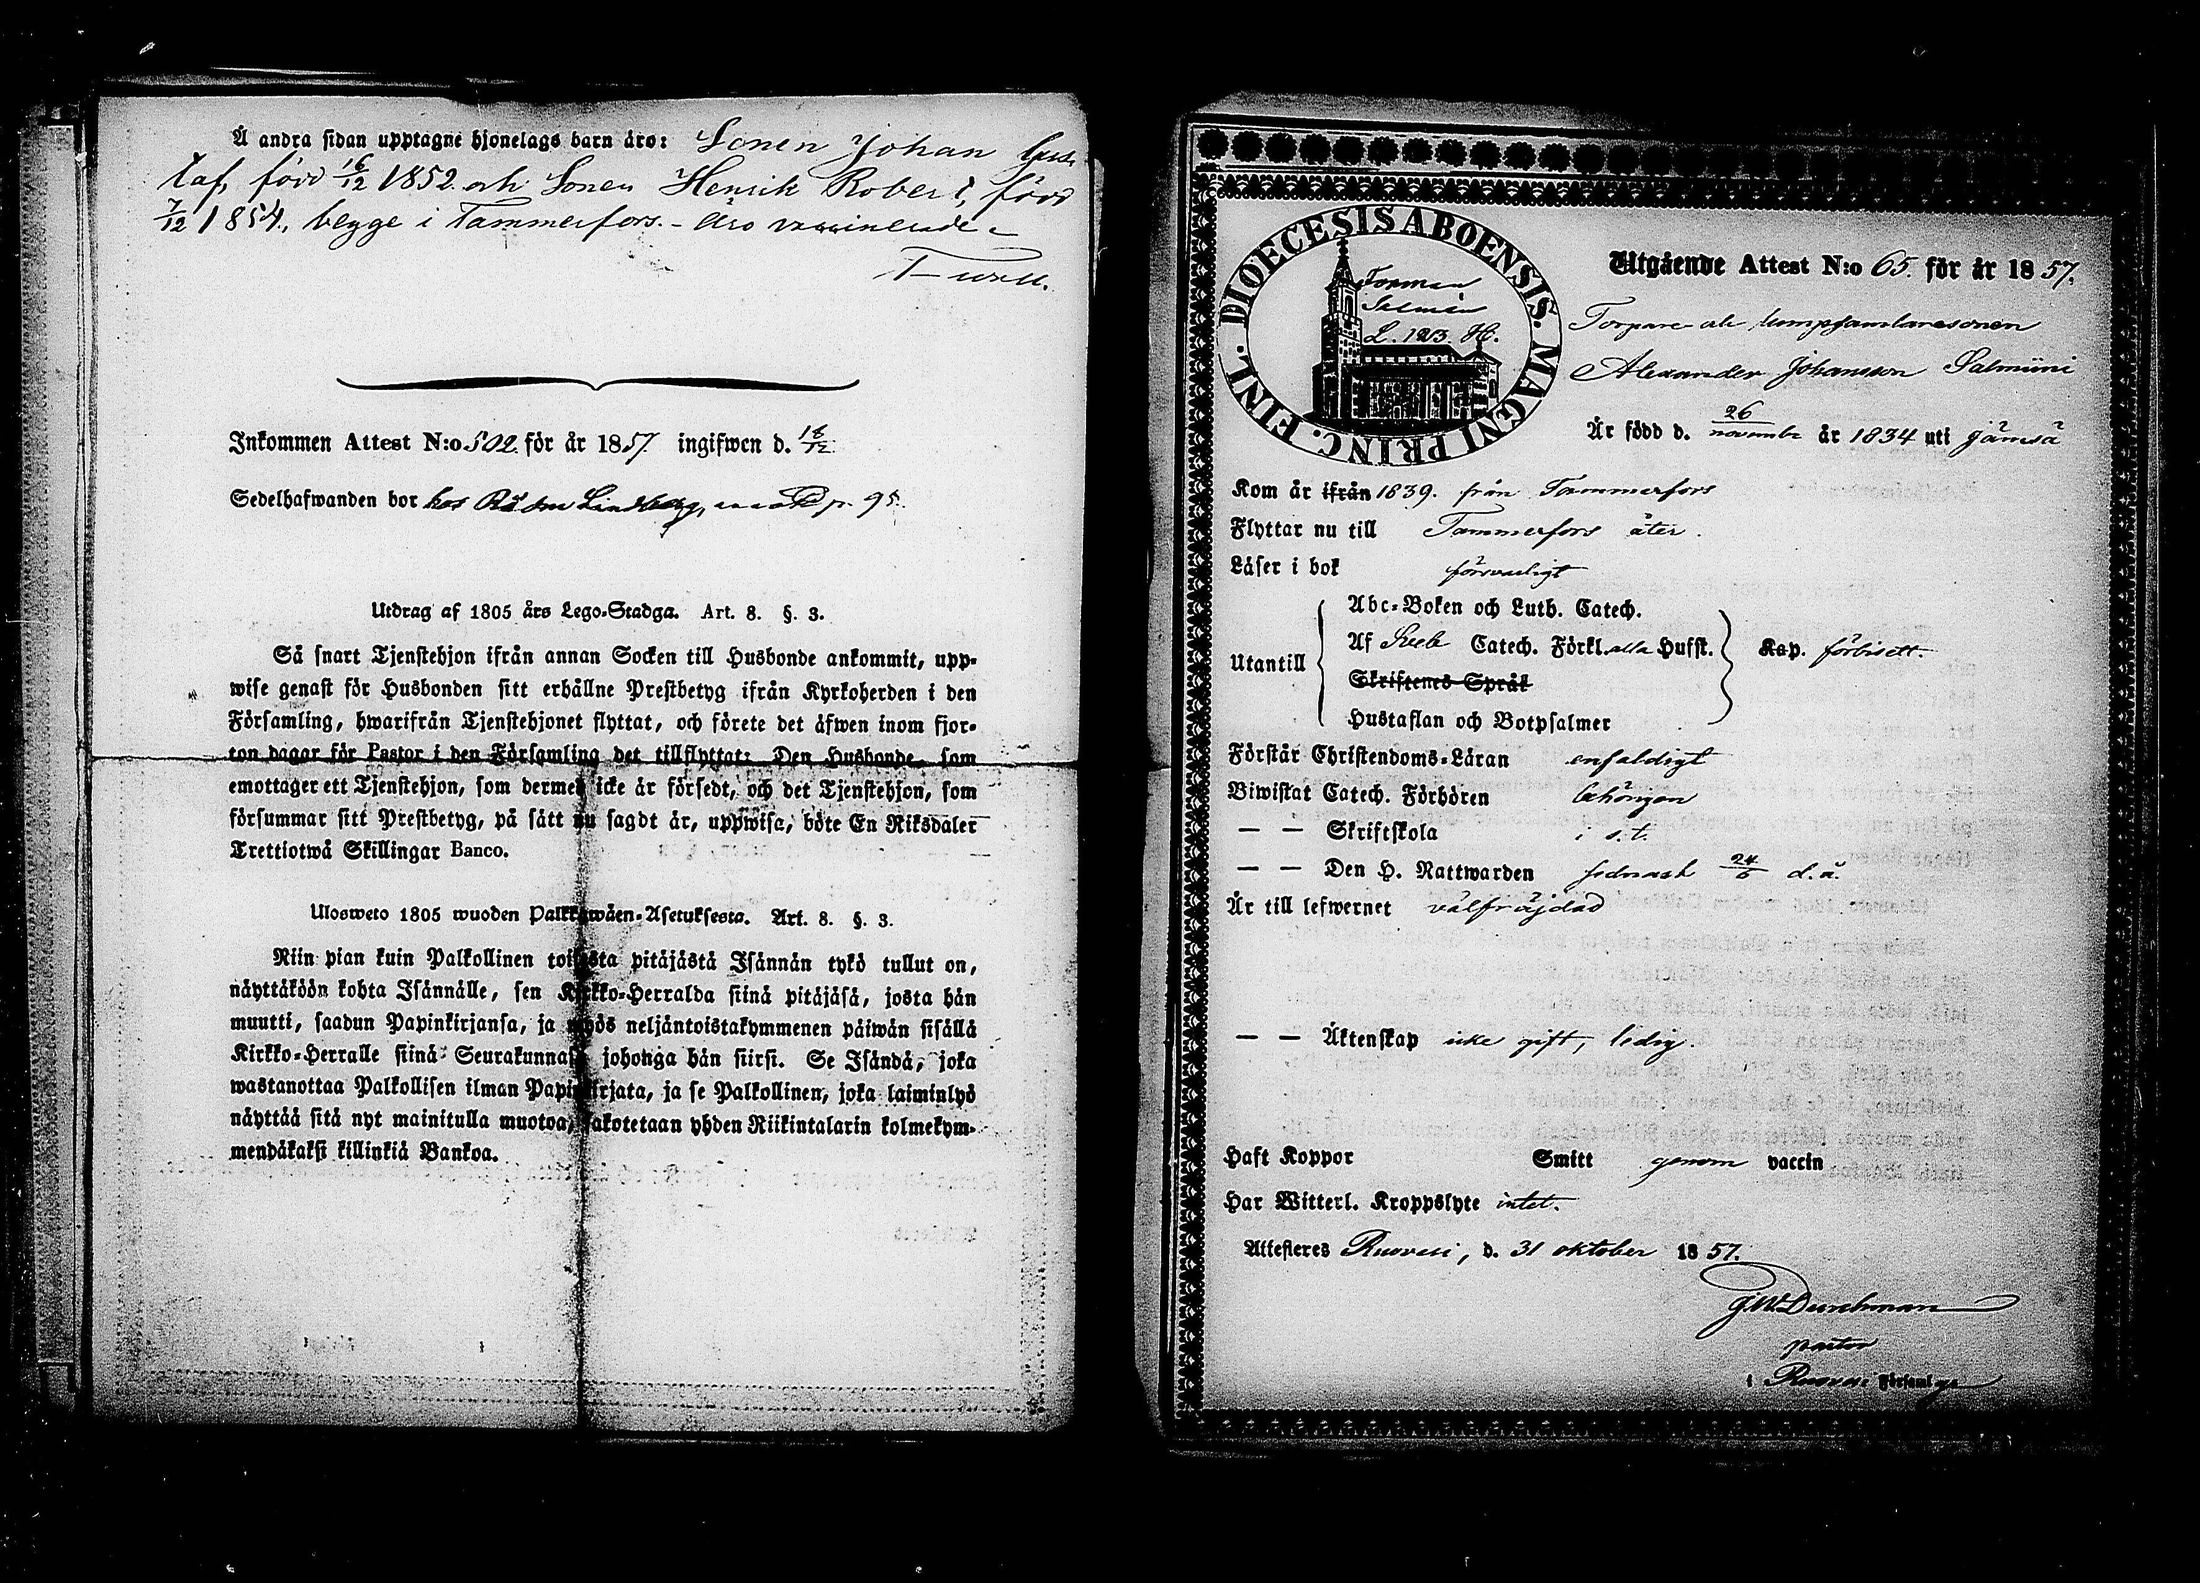 Å andra sidan upptagne hjonelags barn äro: Sonen Johan Gus-
taf, född 16/12 1852 och Sonen Henrik Robert, född
7/12 1854, begge i Tammerfors. - Äro vaccinerade -
Inkommen Attest N:o 502. för år 1857. ingifwen d. 18/12.
Sedelhafwanden bor hos Lindberg, p. 95.
Utdrag af 1805 års Lego-Stadga. Art. 8. §. 3.
Så snart Tjenstehjon ifrån annan Socken till Husbonde ankommit, upp-
wise genast för Husbonden sitt erhållne Prestbetyg ifrån Kyrkoherden i den
Församling, hwarifrån Tjenstehjonet flyttat, och förete det äfwen inom fjor-
ton dagar för Pastor i den Församling det tillflyttat: Den Husbonde, som
emottager ett Tjenstehjon, som dermed icke är försedt, och det Tjenstehjon, som
försummar sitt Prestbetyg, på sätt nu sagdt är, uppwisa, böte En Riksdaler
Trettiotwå Skillingar Banco.
Ulosweto 1805 wuoden Palkkawäen-Asetuksesta. Art. 8. §. 3.
Niin pian kuin Palkollinen toisesta pitäjästä Isännän tykö tullut on,
näyttäköön kohta Isännälle, sen Kirkko-Herralda siinä pitäjäsä, josta hän
muutti, saadun Papinkirjansa, ja myös neljäntoistakymmenen päiwän sisällä
Kirkko-Herralle siinä Seurakunnasa johonga hän siirsi. Se Isändä, joka
wastanottaa Palkollisen ilman Papinkirjata, ja se Palkollinen, joka laiminlyö
näyttää sitä nyt mainitulla muotoa, sakotetaan yhden Riikintalarin kolmekym-
mendäkaksi killinkiä Bankoa.
DIOECESIS ABOENSIS. MAGNI PRINC. FINL.
Torman
Salmén
L. 123. H.
Utgående Attest N:o 65. för år 1857.
Torpare och lumpsamlaresonen
Alexander Johansson Salmiini
Är född d. 26 november år 1834 uti Jämsä
Kom år ifrån 1839. från Tammerfors
Flyttar nu till Tammerfors åter.
Läser i bok försvarligt
Abc-Boken och Luth. Catech.
Utantill Af Sveb Catech. Förkl. alla Hufst. Kap. förbisett.
Skriftenes Språk
Hustaflan och Botpsalmer
Förstår Christendoms-Läran enfaldigt
Biwistat Catech. Förhören behörigen
— — Skriftskola i s. t.
— — Den H. Nattwarden sednast 24/6 d. å.
Är till lefwernet välfräjdad
— — Äktenskap icke gift, ledig.
Haft Koppor Smitt genom vaccin
Har Witterl. Kroppslyte intet.
Attesteras Ruovesi, d. 31 oktober 1857.
G. W. Durchman
pastor
i Ruovesi Församlga